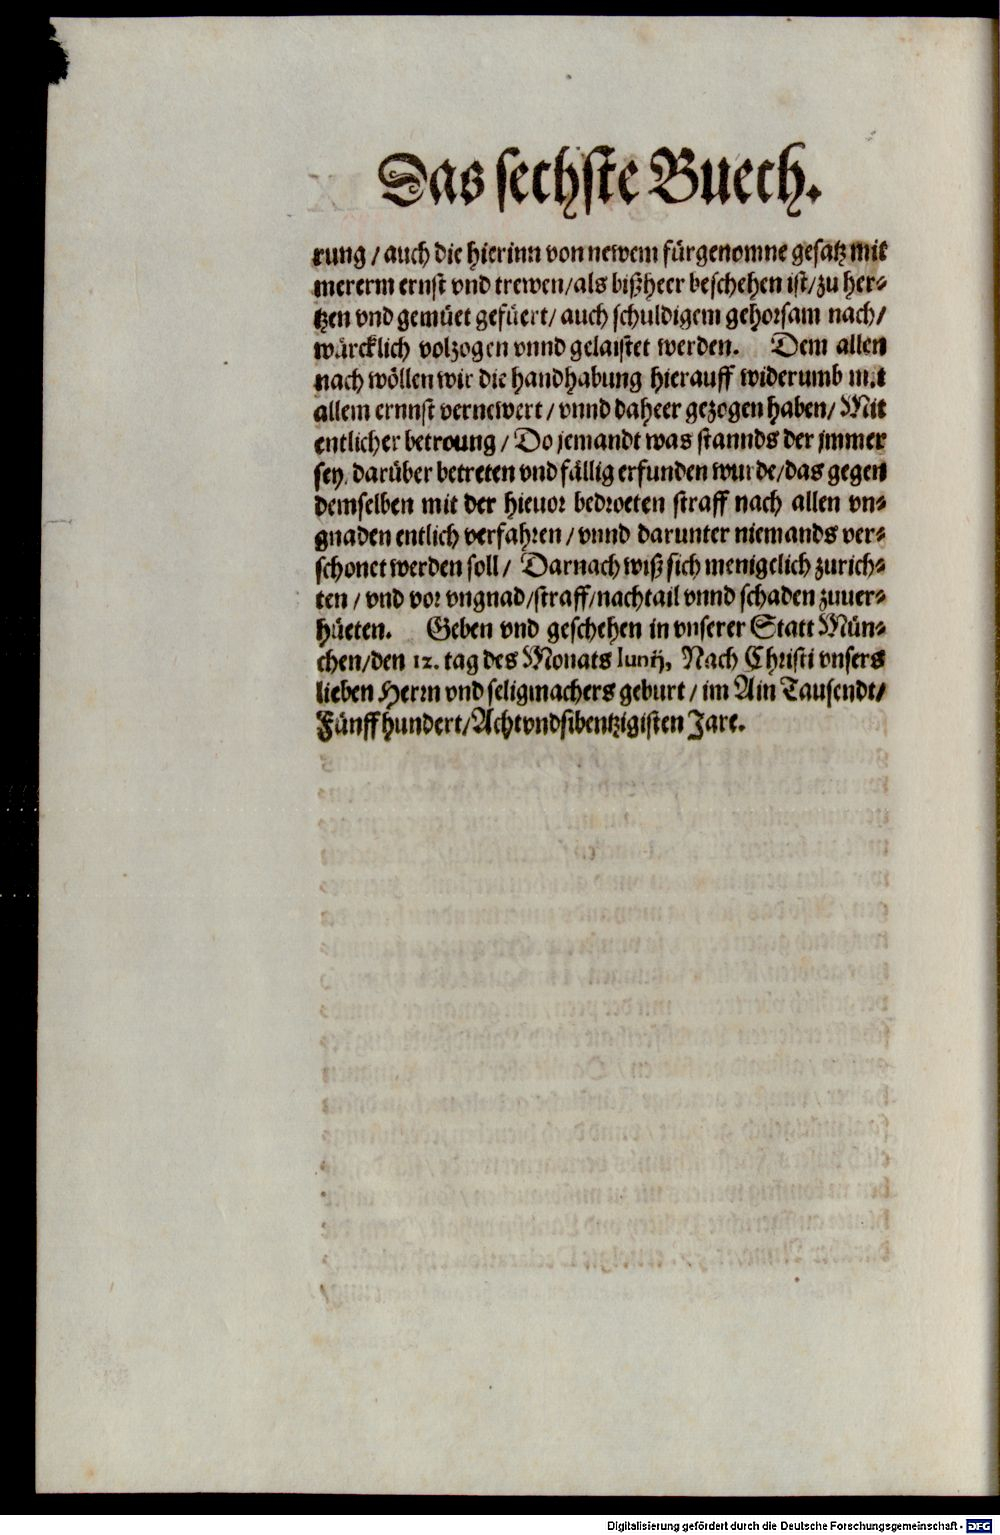 Das sechste Buech.
rung / auch die hierinn von newem fürgenomne gesatz mit
mererm ernst vnd trewen/als bißheer beschehen ist/zu her-
tzen vnd gemüet gefüert/ auch schuldigem gehorsam nach/
würcklich volzogen vnnd gelaistet werden. Dem allen
nach wöllen wir die handhabung hierauff widerumb mit
allem ernnst vernewert / vnnd daheer gezogen haben/ Mit
entlicher betroung / Do jemandt was stannds der jmmer
sey, darüber betreten vnd fällig erfunden wurde/das gegen
demselben mit der hieuor bedroeten straff nach allen vn-
gnaden entlich verfahren / vnnd darunter niemands ver-
schonet werden soll / Darnach wiß sich menigelich zurich-
ten / vnd vor vngnad/straff/nachtail vnnd schaden zuuer-
hüeten. Geben vnd geschehen in vnserer Statt Mün-
chen/den 12. tag des Monats Iunij, Nach Christi vnsers
lieben Herrn vnd seligmachers geburt / im Ain Tausendt/
Fünff hundert/Achtvndsibentzigisten Jare.
Digitalisierung gefördert durch die Deutsche Forschungsgemeinschaft - DFG